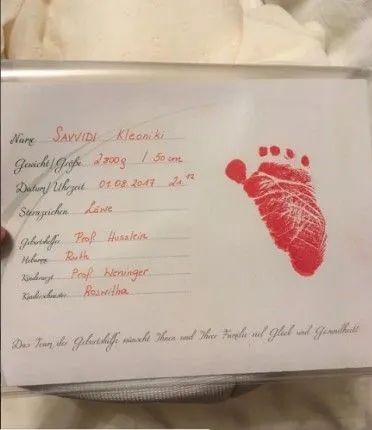 Name SAVVIDI Kleoniki
Gewicht/Größe 2800g / 50 cm
Datum/Uhrzeit 01.08.2017 21:12
Sternzeichen Löwe
Geburtshelfer Prof Husslein
Hebamme Ruth
Kinderarzt Prof Weninger
Kinderschwester Roswitha
Das Team der Geburtshilfe wünscht Ihnen und Ihrer Familie viel Glück und Gesundheit!